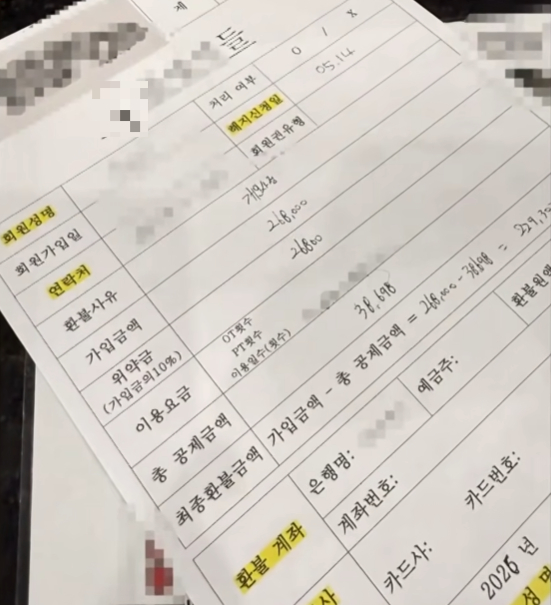 제
들
처리 여부 O / X
해지신청일 05.14
회원권유형
회원성명
회원가입일
연락처
환불사유 개인사정
가입금액 268,000
위약금 26800
(가입금의10%)
이용요금
OT횟수
PT횟수
이용일수(횟수)
총 공제금액 38,698
최종환불금액 가입금액 - 총 공제금액 = 268,000 - 38698 = 229,30
환불 계좌
은행명:
예금주:
환불원
계좌번호:
카드사:
카드번호:
사
2026 년
성 명